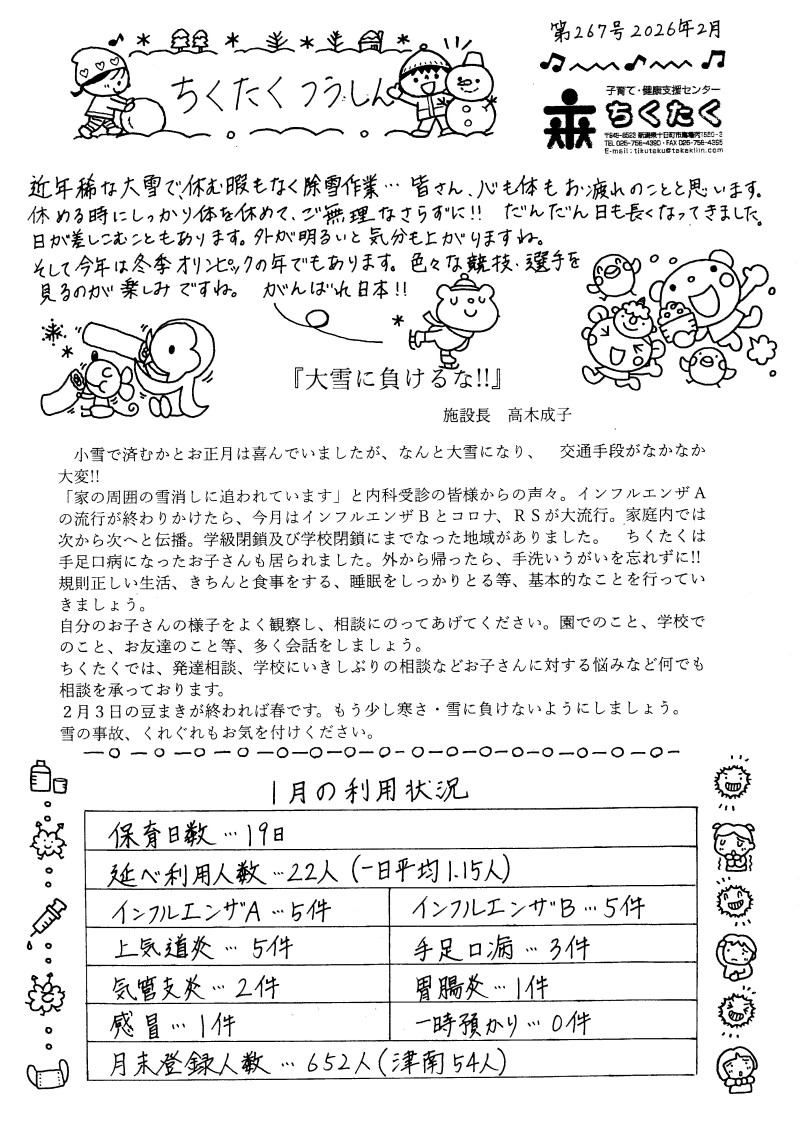 第267号 2026年2月
ちくたくつうしん
子育て・健康支援センター
ちくたく
近年稀な大雪で、休む暇もなく除雪作業… 皆さん、心も体もお疲れのことと思います。
休める時にしっかり体を休めて、ご無理なさらずに!! だんだん日も長くなってきました。
日が差しこむこともあります。外が明るいと気分も上がりますね。
そして今年は冬季オリンピックの年でもあります。色々な競技、選手を
見るのが楽しみですね。 がんばれ日本!!
『大雪に負けるな!!』
施設長 高木成子
小雪で済むかとお正月は喜んでいましたが、なんと大雪になり、 交通手段がなかなか
大変!!
「家の周囲の雪消しに追われています」と内科受診の皆様からの声々。インフルエンザA
の流行が終わりかけたら、今月はインフルエンザBとコロナ、RSが大流行。家庭内では
次から次へと伝播。学級閉鎖及び学校閉鎖にまでなった地域がありました。 ちくたくは
手足口病になったお子さんも居られました。外から帰ったら、手洗いうがいを忘れずに!!
規則正しい生活、きちんと食事をする、睡眠をしっかりとる等、基本的なことを行ってい
きましょう。
自分のお子さんの様子をよく観察し、相談にのってあげてください。園でのこと、学校で
のこと、お友達のこと等、多く会話をしましょう。
ちくたくでは、発達相談、学校にいきしぶりの相談などお子さんに対する悩みなど何でも
相談を承っております。
2月3日の豆まきが終われば春です。もう少し寒さ・雪に負けないようにしましょう。
雪の事故、くれぐれもお気を付けください。
1月の利用状況
保育日数…19日
延べ利用人数…22人(一日平均1.15人)
インフルエンザA…5件 インフルエンザB…5件
上気道炎…5件 手足口病…3件
気管支炎…2件 胃腸炎…1件
感冒…1件 一時預かり…0件
月末登録人数…652人(津南54人)